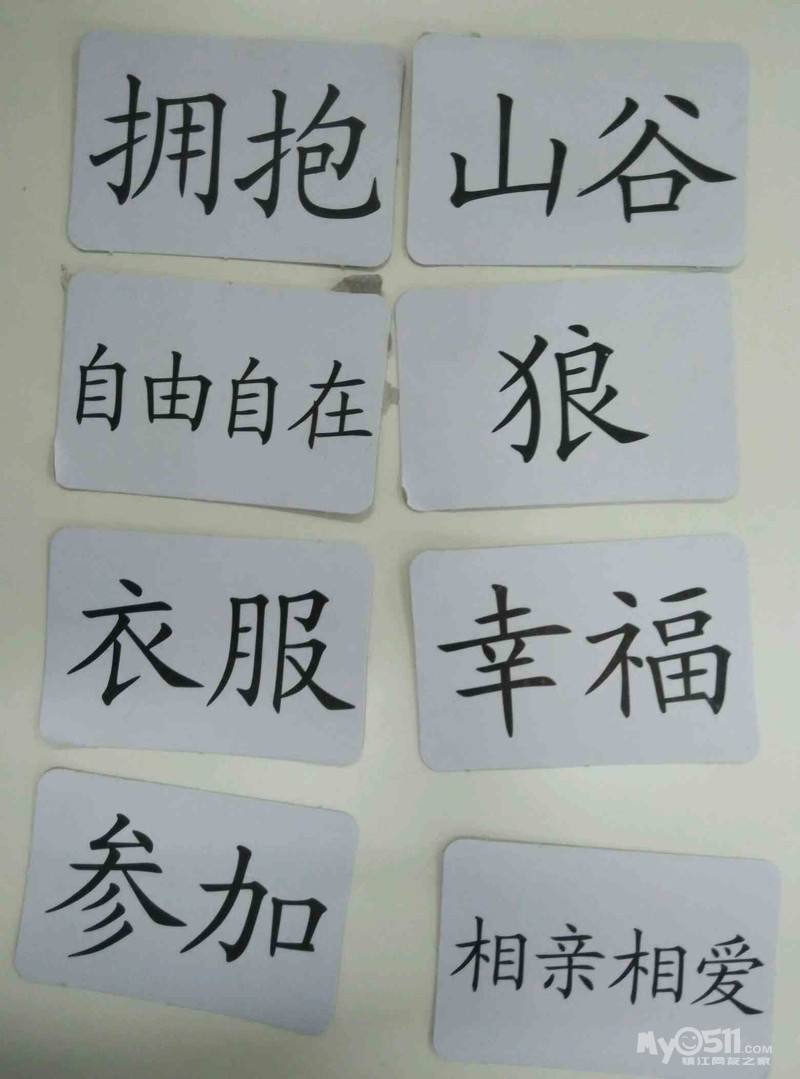 拥抱
山谷
自由自在
狼
衣服
幸福
参加
相亲相爱
My0511.COM
镇江网友之家